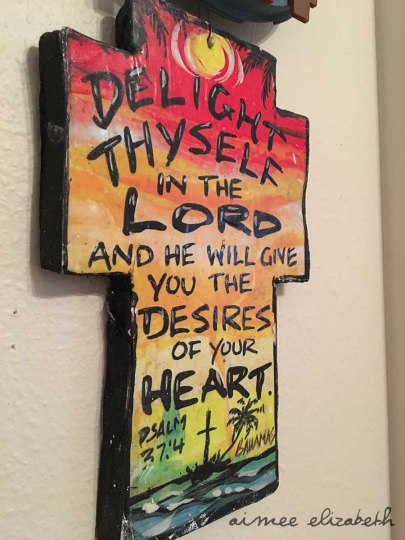 DELIGHT
THYSELF
IN THE
LORD
AND HE WILL GIVE
YOU THE
DESIRES
OF YOUR
HEART.
PSALM
37:4
BAHAMAS
aimee elizabeth